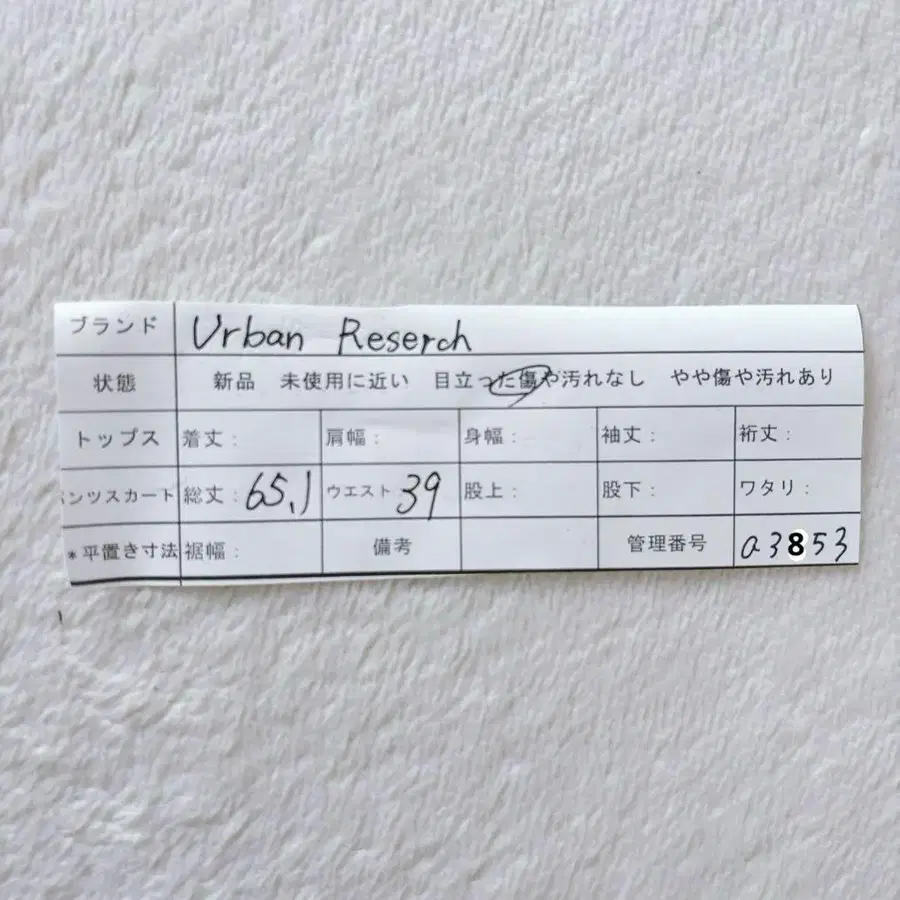 ブランド Urban Reserch
状態 新品 未使用に近い 目立った傷や汚れなし やや傷や汚れあり
トップス 着丈: 肩幅: 身幅: 袖丈: 裄丈:
パンツスカート 総丈: 65.1 ウエスト: 39 股上: 股下: ワタリ:
*平置き寸法 裾幅: 備考 管理番号 a3853